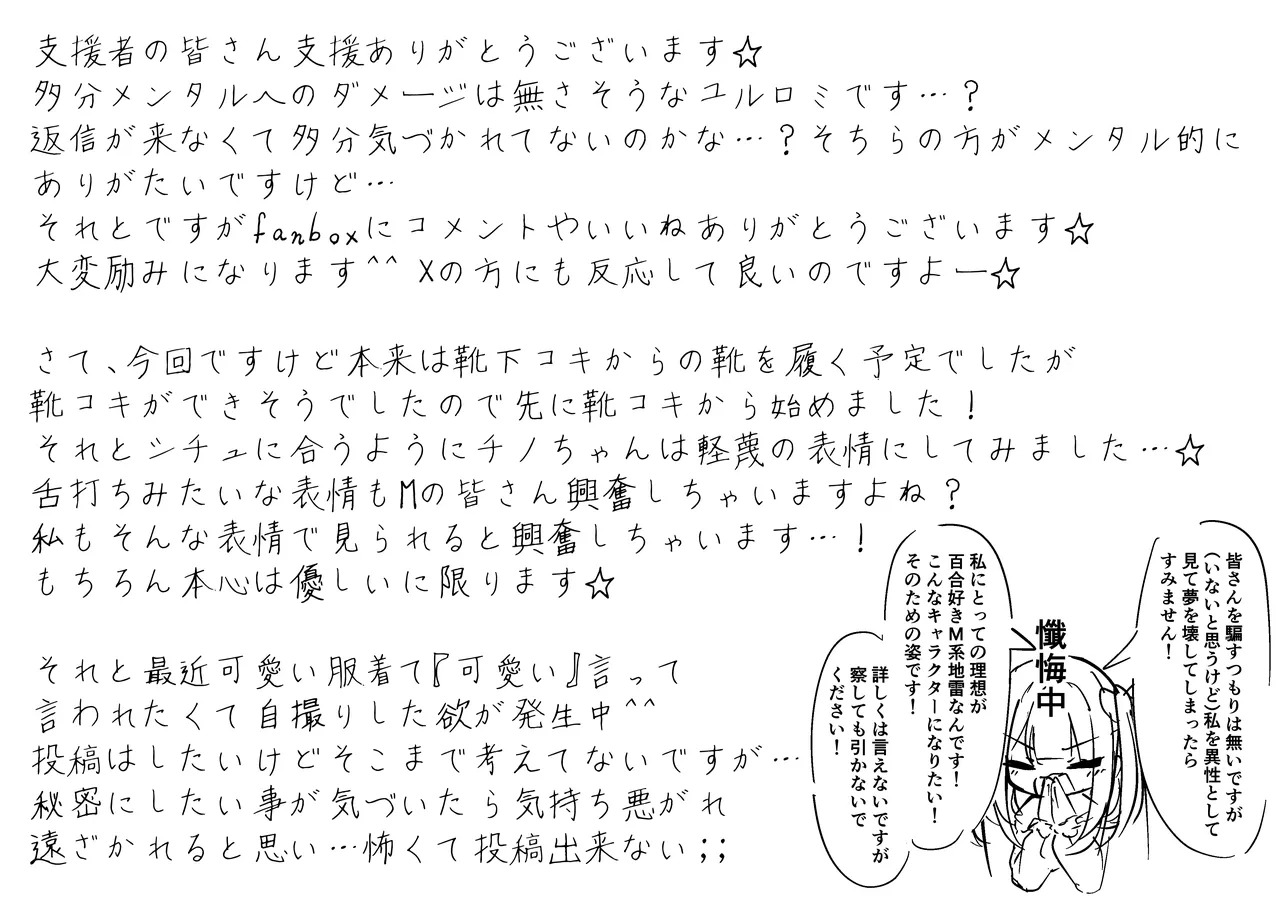 支援者の皆さん支援ありがとうございます☆
多分メンタルへのダメージは無さそうなユルロミです…？
返信が来なくて多分気づかれてないのかな…？そちらの方がメンタル的に
ありがたいですけど…
それとですがfanboxにコメントやいいねありがとうございます☆
大変励みになります^^ Xの方にも反応して良いのですよー☆
さて、今回ですけど本来は靴下コキからの靴を履く予定でしたが
靴コキができそうでしたので先に靴コキから始めました！
それとシチュに合うようにチノちゃんは軽蔑の表情にしてみました…☆
舌打ちみたいな表情もMの皆さん興奮しちゃいますよね？
私もそんな表情で見られると興奮しちゃいます…！
もちろん本心は優しいに限ります☆
それと最近可愛い服着て『可愛い』言って
言われたくて自撮りした欲が発生中^^
投稿はしたいけどそこまで考えてないですが…
秘密にしたい事が気づいたら気持ち悪がれ
遠ざかれると思い…怖くて投稿出来ない；；
皆さんを騙すつもりは無いですが
(いないと思うけど)私を異性として
見て夢を壊してしまったら
すみません！
懺悔中
私にとっての理想が
百合好きM系地雷なんです！
こんなキャラクターになりたい！
そのための姿です！
詳しくは言えないですが
察しても引かないで
ください！